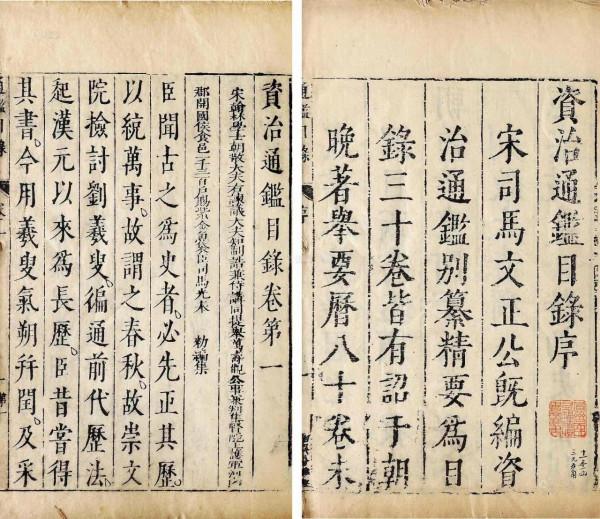 資治通鑑目錄序
宋司馬文正公旣編資
治通鑑別纂精要為目
錄三十卷皆有詔于朝
晚著舉要曆八十卷未
資治通鑑目錄卷第一
宋翰林學士朝散大夫右諫議大夫知制誥兼侍講同提舉萬壽觀公事兼判集賢院上護軍
郡開國侯食邑一千三百戶賜紫金魚袋臣司馬光奉 勅編集
臣聞古之為史者。必先正其歷。
以統萬事。故謂之春秋。故崇文
院檢討劉羲叟。徧通前代歷法。
起漢元以來為長歷。臣昔嘗得
其書。今用羲叟氣朔并閏。及采